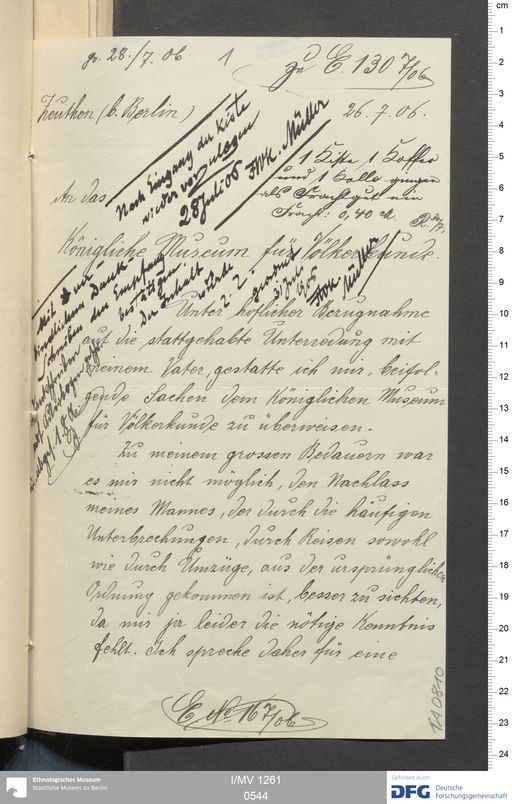 pr. 28./7. 06
1
zu E. 130 7/06
Zeuthen (b. Berlin)
26.7.06.
Nach Eingang der Kiste
wieder vorzulegen
28 Juli 06 FWK. Müller
1 Kiste 1 Koffer
und 1 Collo gingen
als Frachtgut ein
Fracht: 0,40 M.
An das
Königliche Museum für Völkerkunde.
Mit
Dank
den Empfang
bestätigen
Der Inhalt
würde
FWK Müller
Unter höflicher Bezugnahme
auf die stattgehabte Unterredung mit
meinem Vater, gestatte ich mir, beifol-
gende Sachen dem Königlichen Museum
für Völkerkunde zu überweisen.
Zu meinem grossen Bedauern war
es mir nicht möglich, den Nachlass
meines Mannes, der durch die häufigen
Unterbrechungen, durch Reisen sowohl
wie durch Umzüge, aus der ursprünglichen
Ordnung gekommen ist, besser zu sichten,
da mir ja leider die nötige Kenntnis
fehlt. Ich spreche daher für eine
E No 167/06
IA 0810
cm
1
2
3
4
5
6
7
8
9
10
11
12
13
14
15
16
17
18
19
20
21
22
23
24
Ethnologisches Museum
Staatliche Museen zu Berlin
I/MV 1261
0544
Gefördert durch
DFG Deutsche
Forschungsgemeinschaft